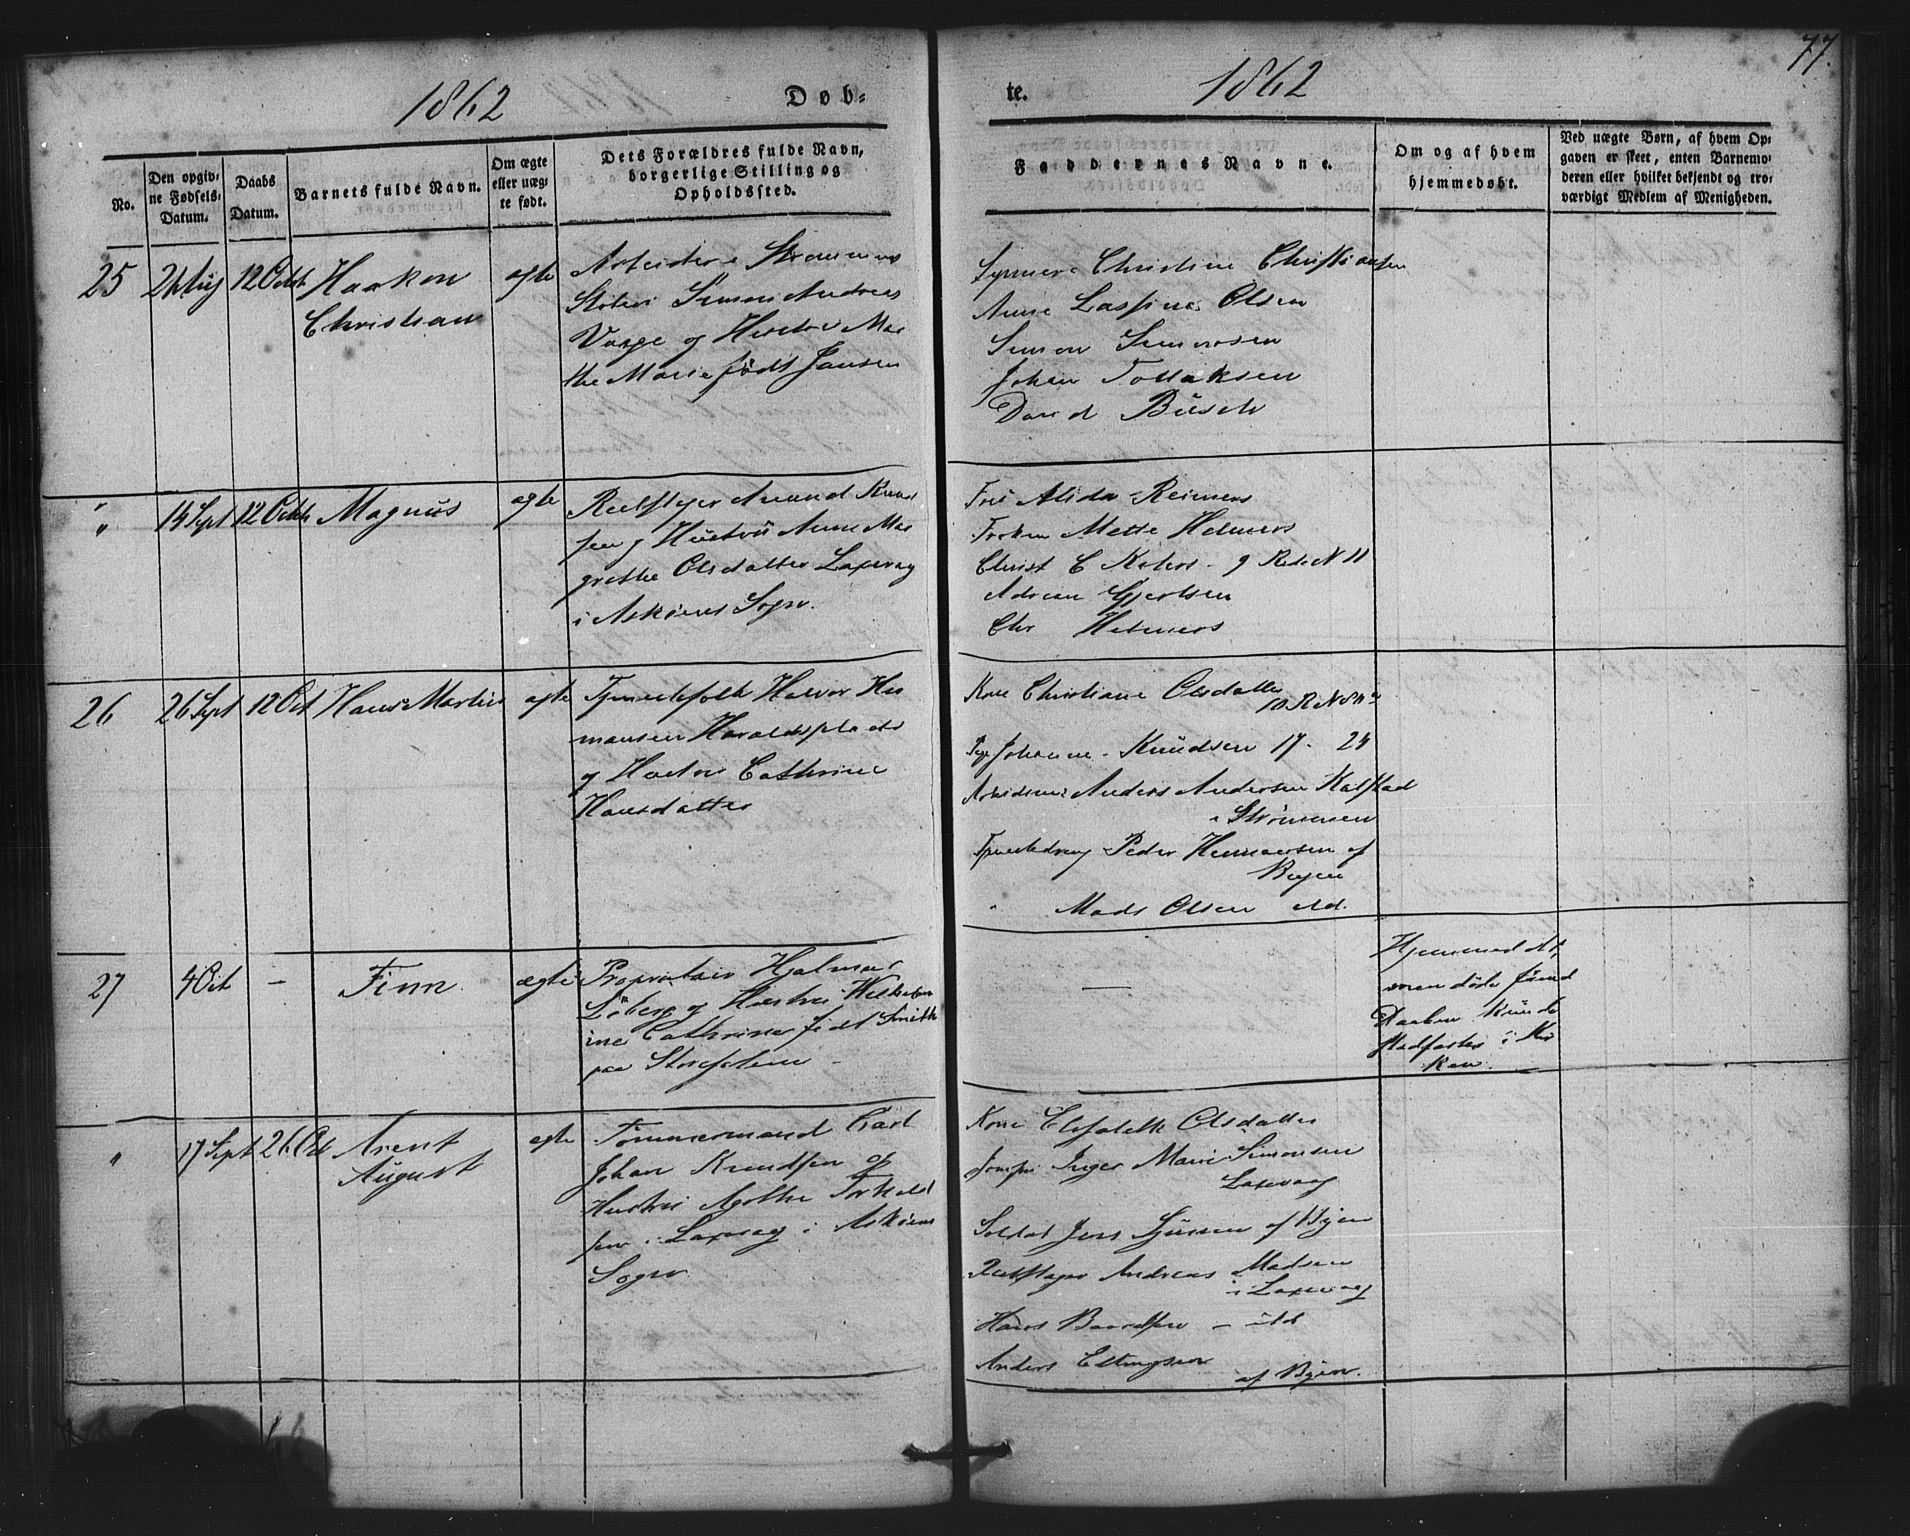 77.
1862
Døb-
te.
1862
No.
Den opgiv-
ne Fødsels-
Datum.
Daabs
Datum.
Barnets fulde Navn.
Om ægte
eller uæg-
te født.
Dets Forældres fulde Navn,
borgerlige Stilling og
Opholdssted.
Faddernes Navne.
Om og af hvem
hjemmedøbt.
Ved uægte Børn, af hvem Op-
gaven er skeet, enten Barnemo-
deren eller hvilket bekjendt og tro-
værdigt Medlem af Menigheden.
25
12 Octb
Haakon
Christian
ægte
Arbeider i Strømmens
Simon Andreas
og Hustru Mar
the Marie født Jansen
Christine Christiansen
Anne Olsen
Simon Simonsen
Johan Tollaksen
David Büsch
"
14 Sept
12 Octb
Magnus
ægte
Reebslager Amund Knud
sen og Hustru Anne Mar
grethe Olsdatter Laxevaag
i Askøens Sogn.
Alida Reimers
Frøken Mette Helmers
Christ C
Adrian Gjertsen
Chr Helmers
26
26 Sept
12 Oct
Hans Martin
ægte
Tjenestefolk Halvor Her
mansen Haraldsplads
og Hustru Cathrine
Hansdatter
Kone Christiane Olsdatter
Pige Johanne Knudsen 17 - 24
Anders Andersen Kalfstad
i Strømmen
Peder Hermansen af
Byen
" Mads Olsen
27
4 Oct
-
Finn
ægte
Proprietair Hjalmar
Løberg og Hustru Wilhelm
ine Cathrine født Smith
paa Storefolern
-
Hjemmedøbt,
men døde førend
Daaben kunde
stadfæstes i Kir
ken.
"
17 Sept
26 Oct
Arent
August
ægte
Tømmermand Carl
Johan Knudsen og
Hustru Agathe Torkeld
sen i Laxevaag i Askøens
Sogn
Kone Elisabeth Olsdatter
Jomfru Inger Marie Simonsen
Laxevaag
Soldat Jens af Byen
Reebslager Andreas Madsen
i Laxevaag
Hans Baardsen
Anders Ellingsen
af Byen.